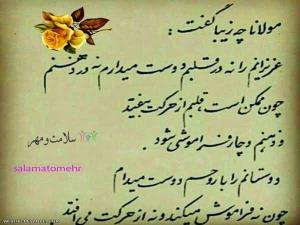 مولانا چه زیبا گفت :
عزیزانم را نه در قلبم دوست میدارم نه در ذهنم
چون ممکن است، قلبم از حرکت بیفتد
و ذهنم دچار فراموشی شود .
سلامت و مهر
دوستانم را با روحم دوست میدارم
salamatomehr
چون نه فراموش میکند و نه از حرکت می افتد